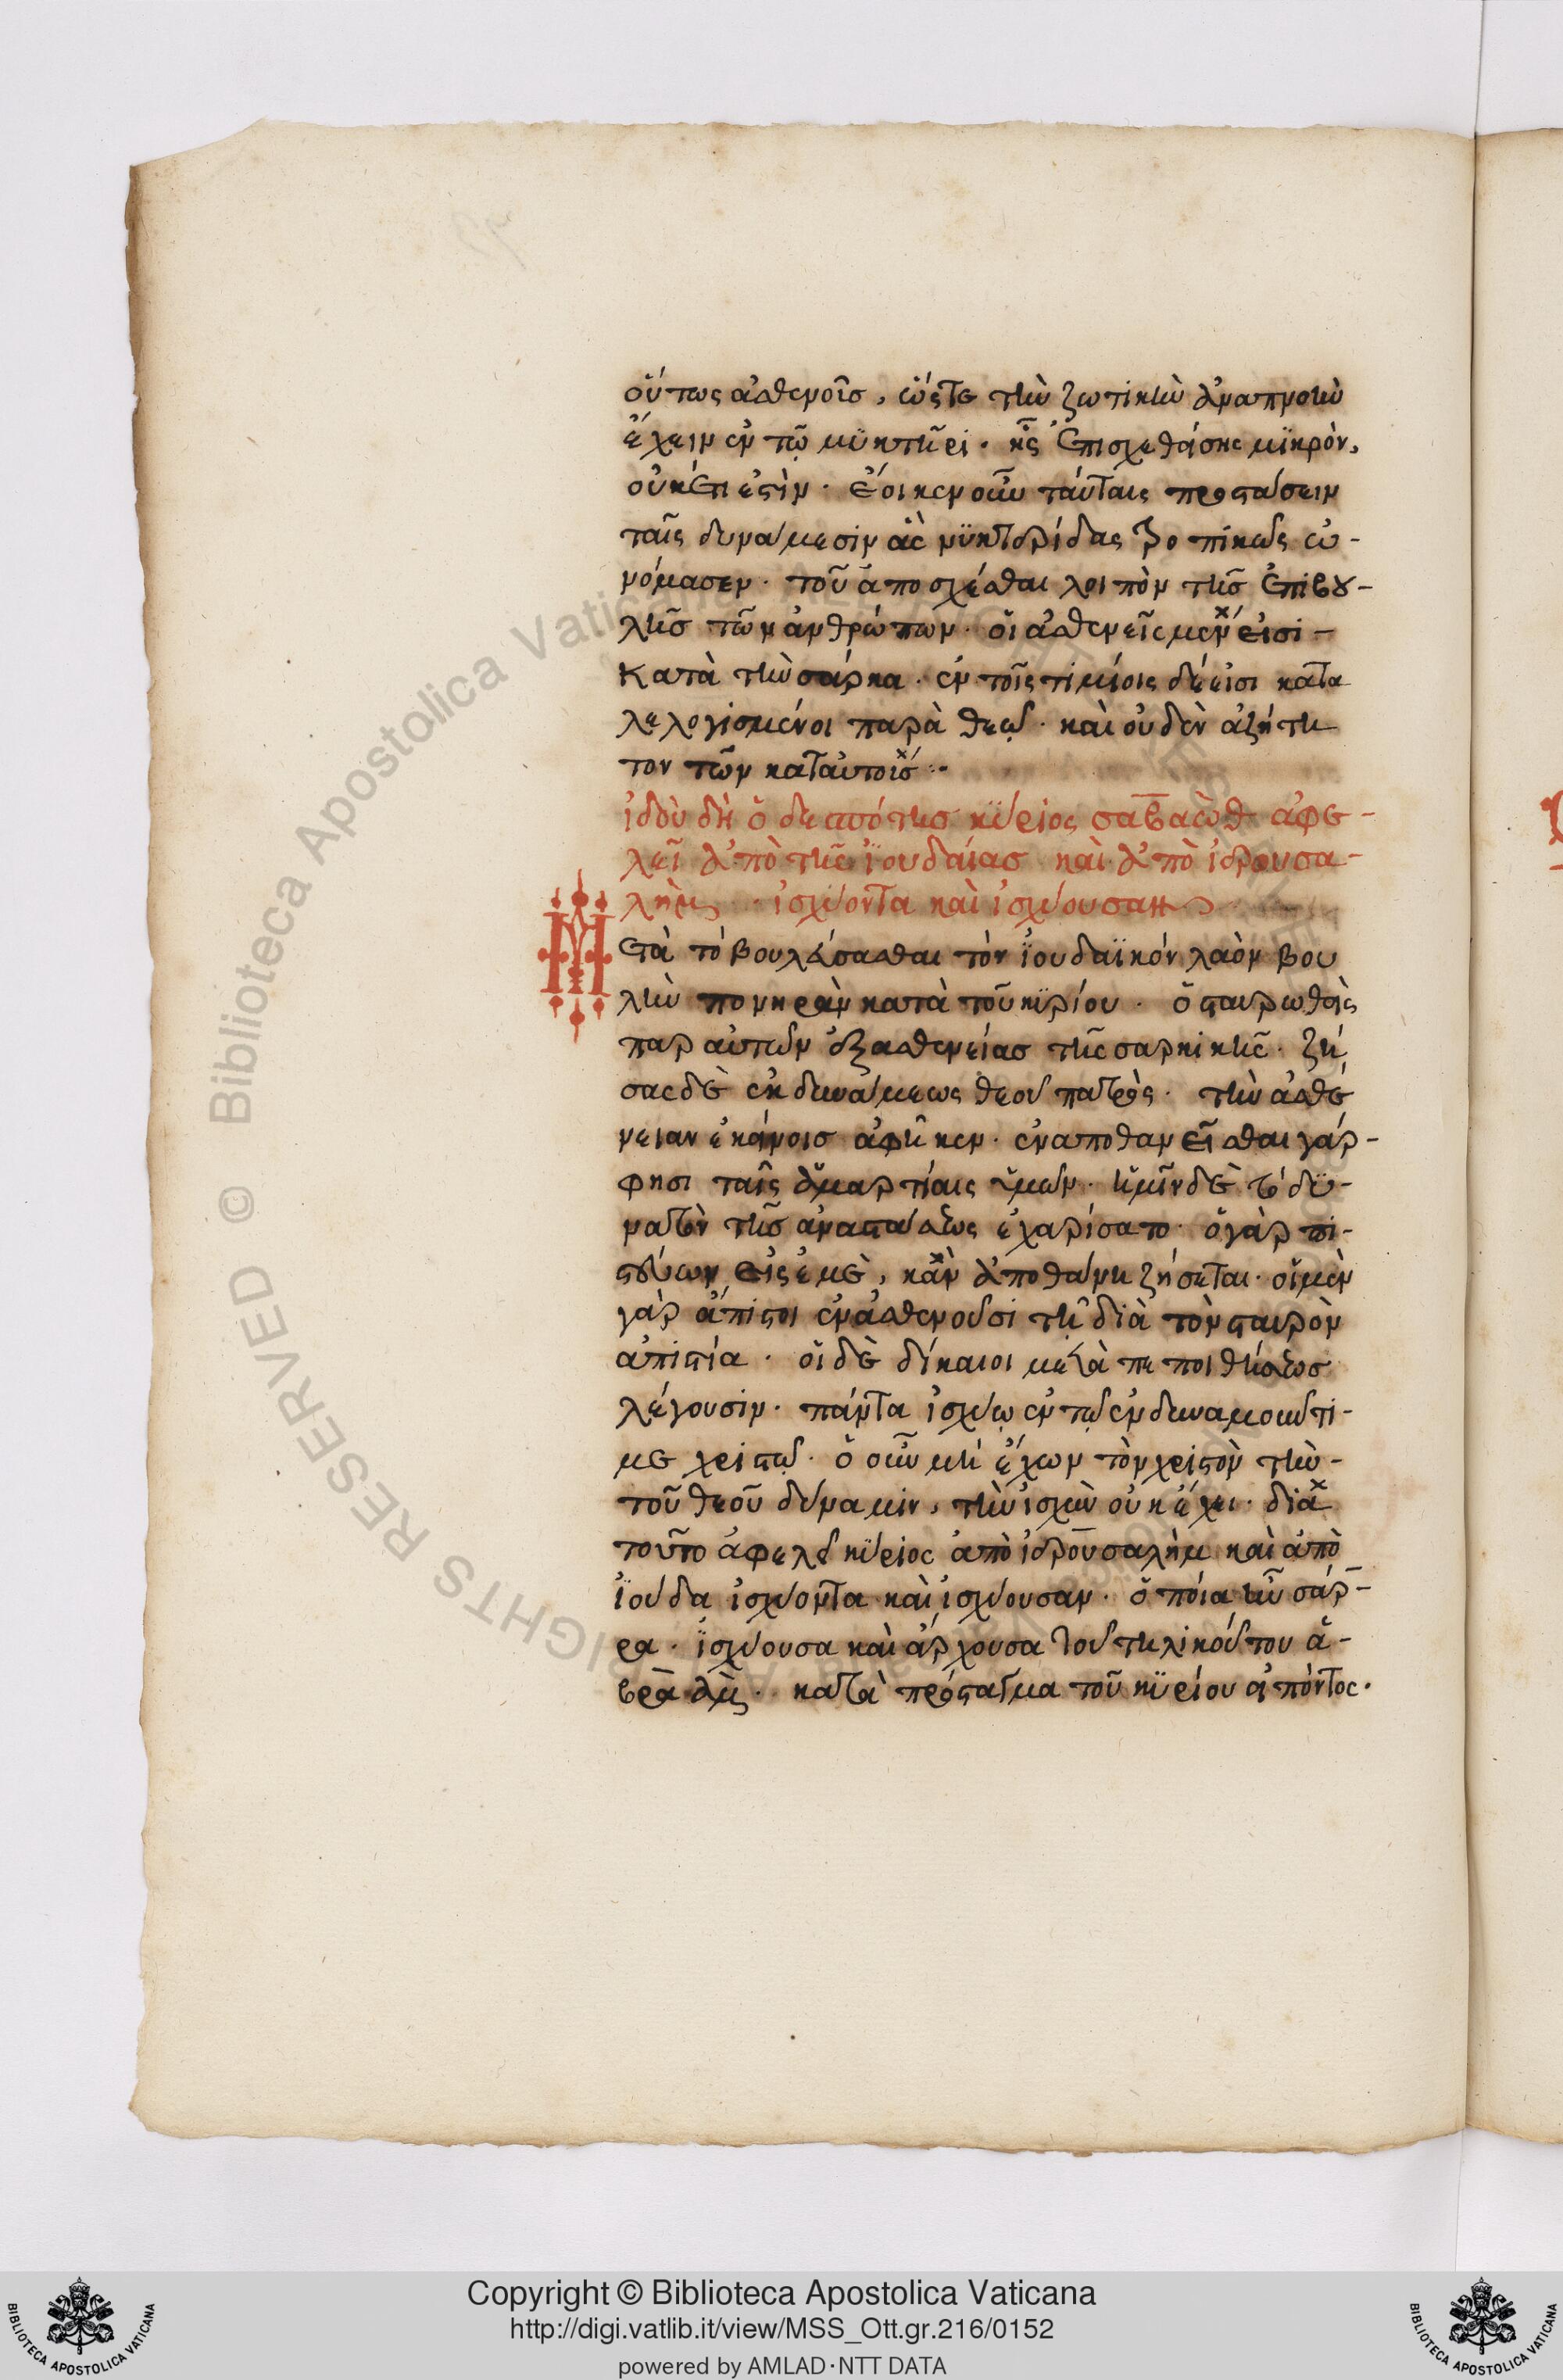 οὕτως ἀσθενοῖσ, ὥστε τὴν ζωτικὴν ἀναπνοὴν
ἔχειν ἐν τῷ μυκτῆρι. ἧς ἐπισχεθάσης μϊκρὸν,
οὐκέτι ἐστὶν. ἔοικεν οὖν ταύταις προστάσσειν
ταῖς δυναμεσιν ἃς νϋκτερίδας τροπικῶς ὠ-
νόμασεν. τοῦ ἀποσχέσθαι λοιπὸν τῆσ ἐπιβου-
λῆσ τῶν ἀνθρώπων. οἳ ἀσθενεῖς μέν εἰσι-
κατὰ τὴν σάρκα. ἐν τοῖς τιμίοις δέ εἰσι κατα
λελογισμένοι παρὰ θεῷ. καὶ οὐδὲν ἀζήτη
τον τῶν κατ αὐτοὺσ:-
ἰδοὺ δὴ ὁ δεσπότησ κύριος σαβαὼθ ἀφε-
λεῖ ἀπὸ τῆς ἰουδαίασ καὶ ἀπὸ ἱερουσα-
λὴμ. ἰσχύοντα καὶ ἰσχύουσαν
Μετὰ τὸ βουλεύσασθαι τὸν ἰουδαϊκόν λαὸν βου
λὴν πονηρὰν κατὰ τοῦ κϋρίου. ὁ σταυρωθεὶς
παρ αὐτῶν ἐξ ασθενείασ τῆς σαρκικῆς. ζή
σας δὲ ἐκ δυνάμεως θεοῦ πατρὸς. τὴν ἀσθέ
νειαν ἐκείνοισ ἀφῆκεν. ἐναποθανεῖσθαι γάρ-
φησι ταῖς ἁμαρτίαις ὑμῶν. ἡμῖν δὲ τὸ δϋ-
νατὸν τῆσ ἀναστάσεως ἐχαρίσατο. ὁ γὰρ πι-
στεύων εἰς ἐμὲ, κἂν ἀποθάνη ζήσεται. οἱ μὲν
γὰρ ἄπιστοι ἐνασθενοῦσι τῆ διὰ τὸν σταυρὸν
ἀπιστία. οἱ δὲ δίκαιοι μετὰ πεποιθήσεωσ
λέγουσιν. πάντα ἰσχύω ἐν τῷ ἐνδυναμοῦντι-
με χριστῷ. ὁ οὖν μὴ ἔχων τὸν χριστὸν τὴν-
τοῦ θεοῦ δύναμιν, τὴν ἰσχὺν οὐκ ἔχει. διὰ
τοῦτο ἀφελεῖ κύριος ἀπὸ ἱερουσαλὴμ καὶ ἀπὸ
ἰούδα ἰσχύοντα καὶ ἰσχύουσαν. ὁποία ἦν σάρ-
ρα. ἰσχύουσα καὶ ἄρχουσα τοῦ τηλικούτου ἁ-
βραὰμ. κατὰ πρόσταγμα τοῦ κϋρίου εἰπόντος.
Copyright © Biblioteca Apostolica Vaticana
http://digi.vatlib.it/view/MSS_Ott.gr.216/0152
powered by AMLAD·NTT DATA